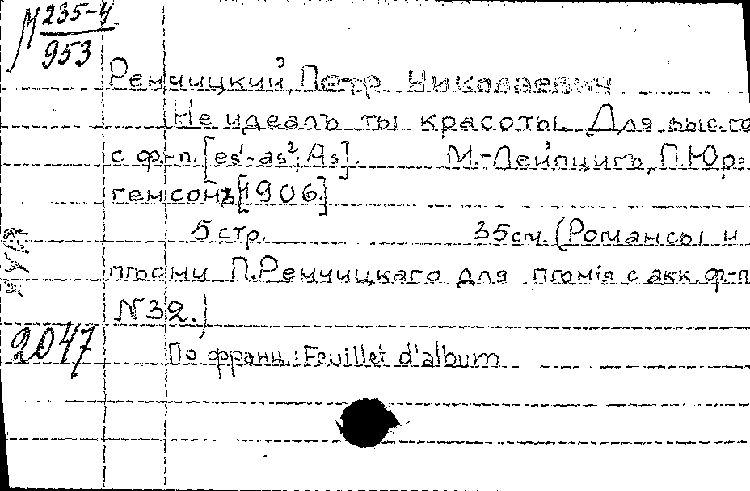 М 235-4
953
Ренчицкий, Петр Николаевич
Не идеалъ ты красоты. Для выс. го
с ф-п. [es¹-as²; As]. М.-Лейпцигъ, П. Юр=
генсонъ [1906.]
5 стр. 35 см. (Романсы и
пѣсни П. Ренчицкаго для пѣнія с акк. ф-п
N 32.)
2047
По франц.: Feuillet d'album